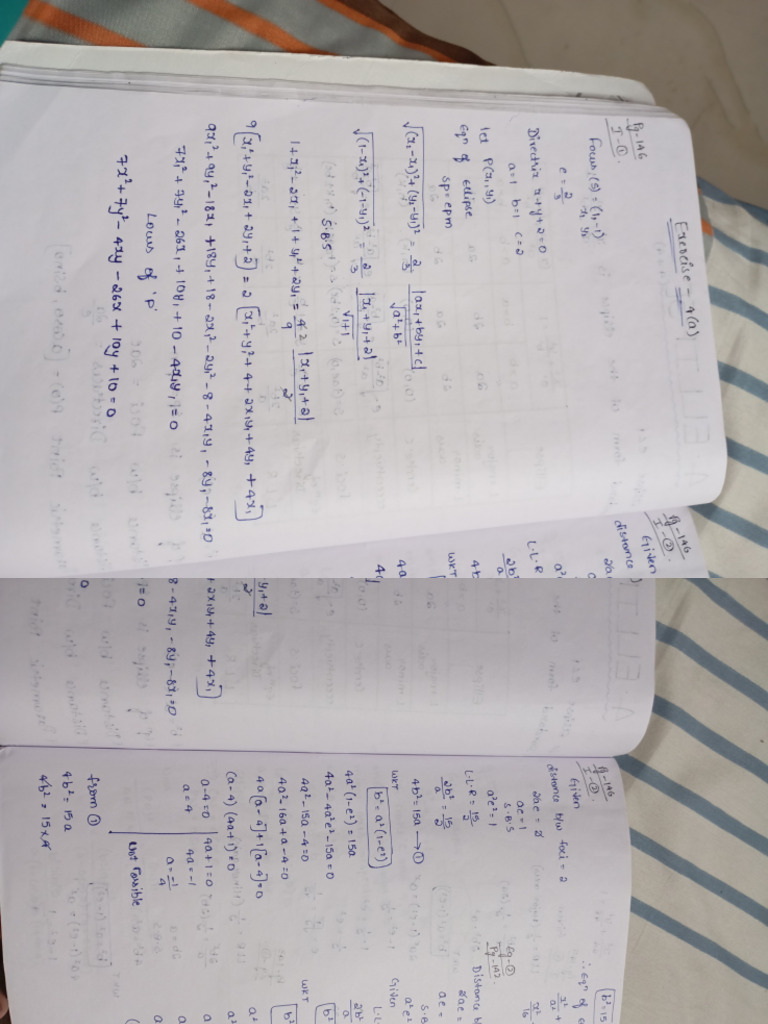 Exercise - 4(a)
Pg-146
I-①.
Focus (S) = (1, -1)
x₁ y₁
e = 2/3
Directrix x+y+2=0
a=1 b=1 c=2
let P(x₁, y₁)
Eqn of ellipse
SP=ePM
√(x₁-x₁)²+(y₁-y₁)² = 2/3 |ax₁+by₁+c|/√a²+b²
√(1-x₁)²+(-1-y₁)² = 2/3 |x₁+y₁+2|/√1+1
S.B.S
1+x₁²-2x₁+1+y₁²+2y₁ = 4/9 |x₁+y₁+2|/2
9[x₁²+y₁²-2x₁+2y₁+2] = 2[x₁²+y₁²+4+2x₁y₁+4y₁+4x₁]
9x₁²+9y₁²-18x₁+18y₁+18-2x₁²-2y₁²-8-4x₁y₁-8y₁-8x₁=0
7x₁²+7y₁²-26x₁+10y₁+10-4x₁y₁=0
Locus of 'P'
7x²+7y²-4xy-26x+10y+10=0
Pg-146
I-②.
Given
distance b/w foci = 2
2ae = 2
ae = 1
S.B.S
a²e² = 1
L.L.R = 15/2
2b²/a = 15/2
4b² = 15a → ①
WKT
b² = a²(1-e²)
4a²(1-e²) = 15a
4a²-4a²e²-15a=0
4a²-15a-4=0
4a²-16a+a-4=0
4a[a-4]+1[a-4]=0
(a-4)(4a+1)=0
a-4=0 4a+1=0
a=4 4a=-1
a=-1/4
not possible
from ①
4b² = 15a
4b² = 15×4
b²=15
∴ Eqn of
x²/a² +
x²/16
Pg-142
Distance b
2ae =
ae =
S.B
a²e²
Given
L.L
2b²/a
WKT
b²